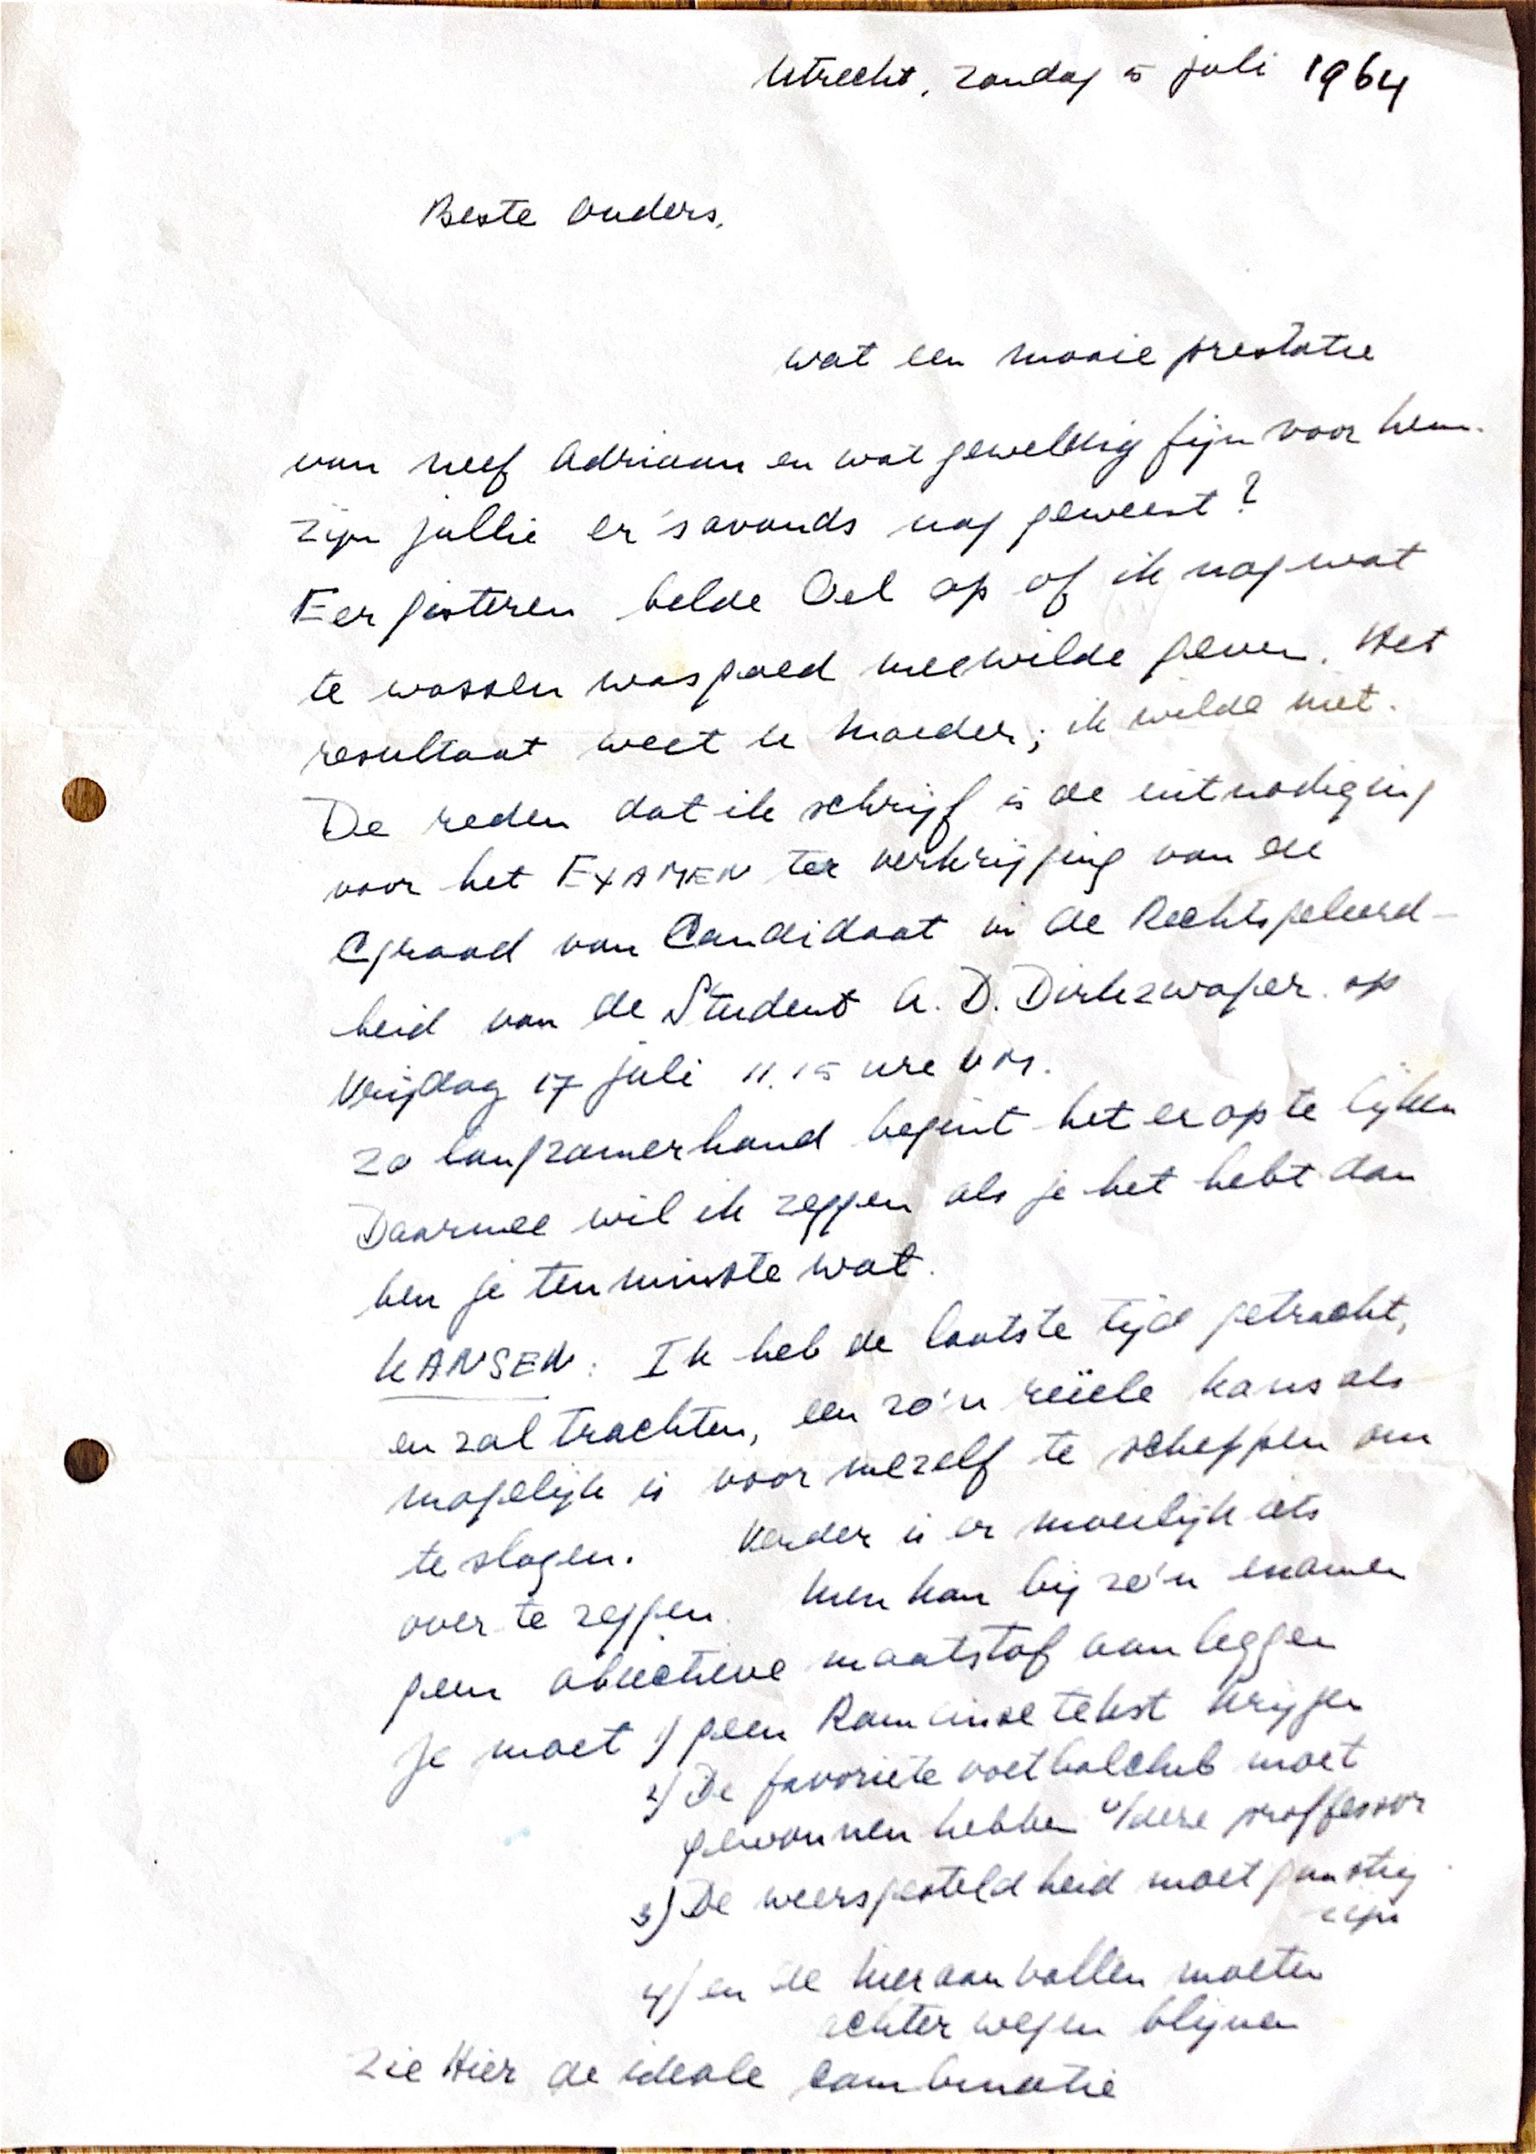 Utrecht, zondag 5 juli 1964
Beste Ouders,
wat een mooie prestatie
van neef Adriaan en wat geweldig fijn voor hem.
Zijn jullie er 's avonds nog geweest?
Eergisteren belde Oel op of ik nog wat
te wassen wasgoed mee wilde geven. Het
resultaat weet u Moeder; ik wilde niet.
De reden dat ik schrijf is de uitnodiging
voor het EXAMEN ter verkrijging van de
Graad van Candidaat in de Rechtsgeleerd-
heid van de Student A. D. Dirkzwager op
Vrijdag 17 juli 11.15 ure VM.
Zo langzamerhand begint het er op te lijken
Daarmee wil ik zeggen als je het hebt dan
ben je tenminste wat.
KANSEN: Ik heb de laatste tijd getracht,
en zal trachten, een zo'n reïele kans als
mogelijk is voor mezelf te scheppen om
te slagen. Verder is er moeilijk iets
over te zeggen. Men kan bij zo'n examen
geen objectieve maatstaf aanleggen
Je moet 1) geen Romeinse tekst krijgen
2) De favoriete voetbalclub moet
gewonnen hebben v/deze proffessor
3) De weersgesteldheid moet gunstig
zijn
4) en de nieraanvallen moeten
achterwegen blijven
Zie Hier de ideale combinatie